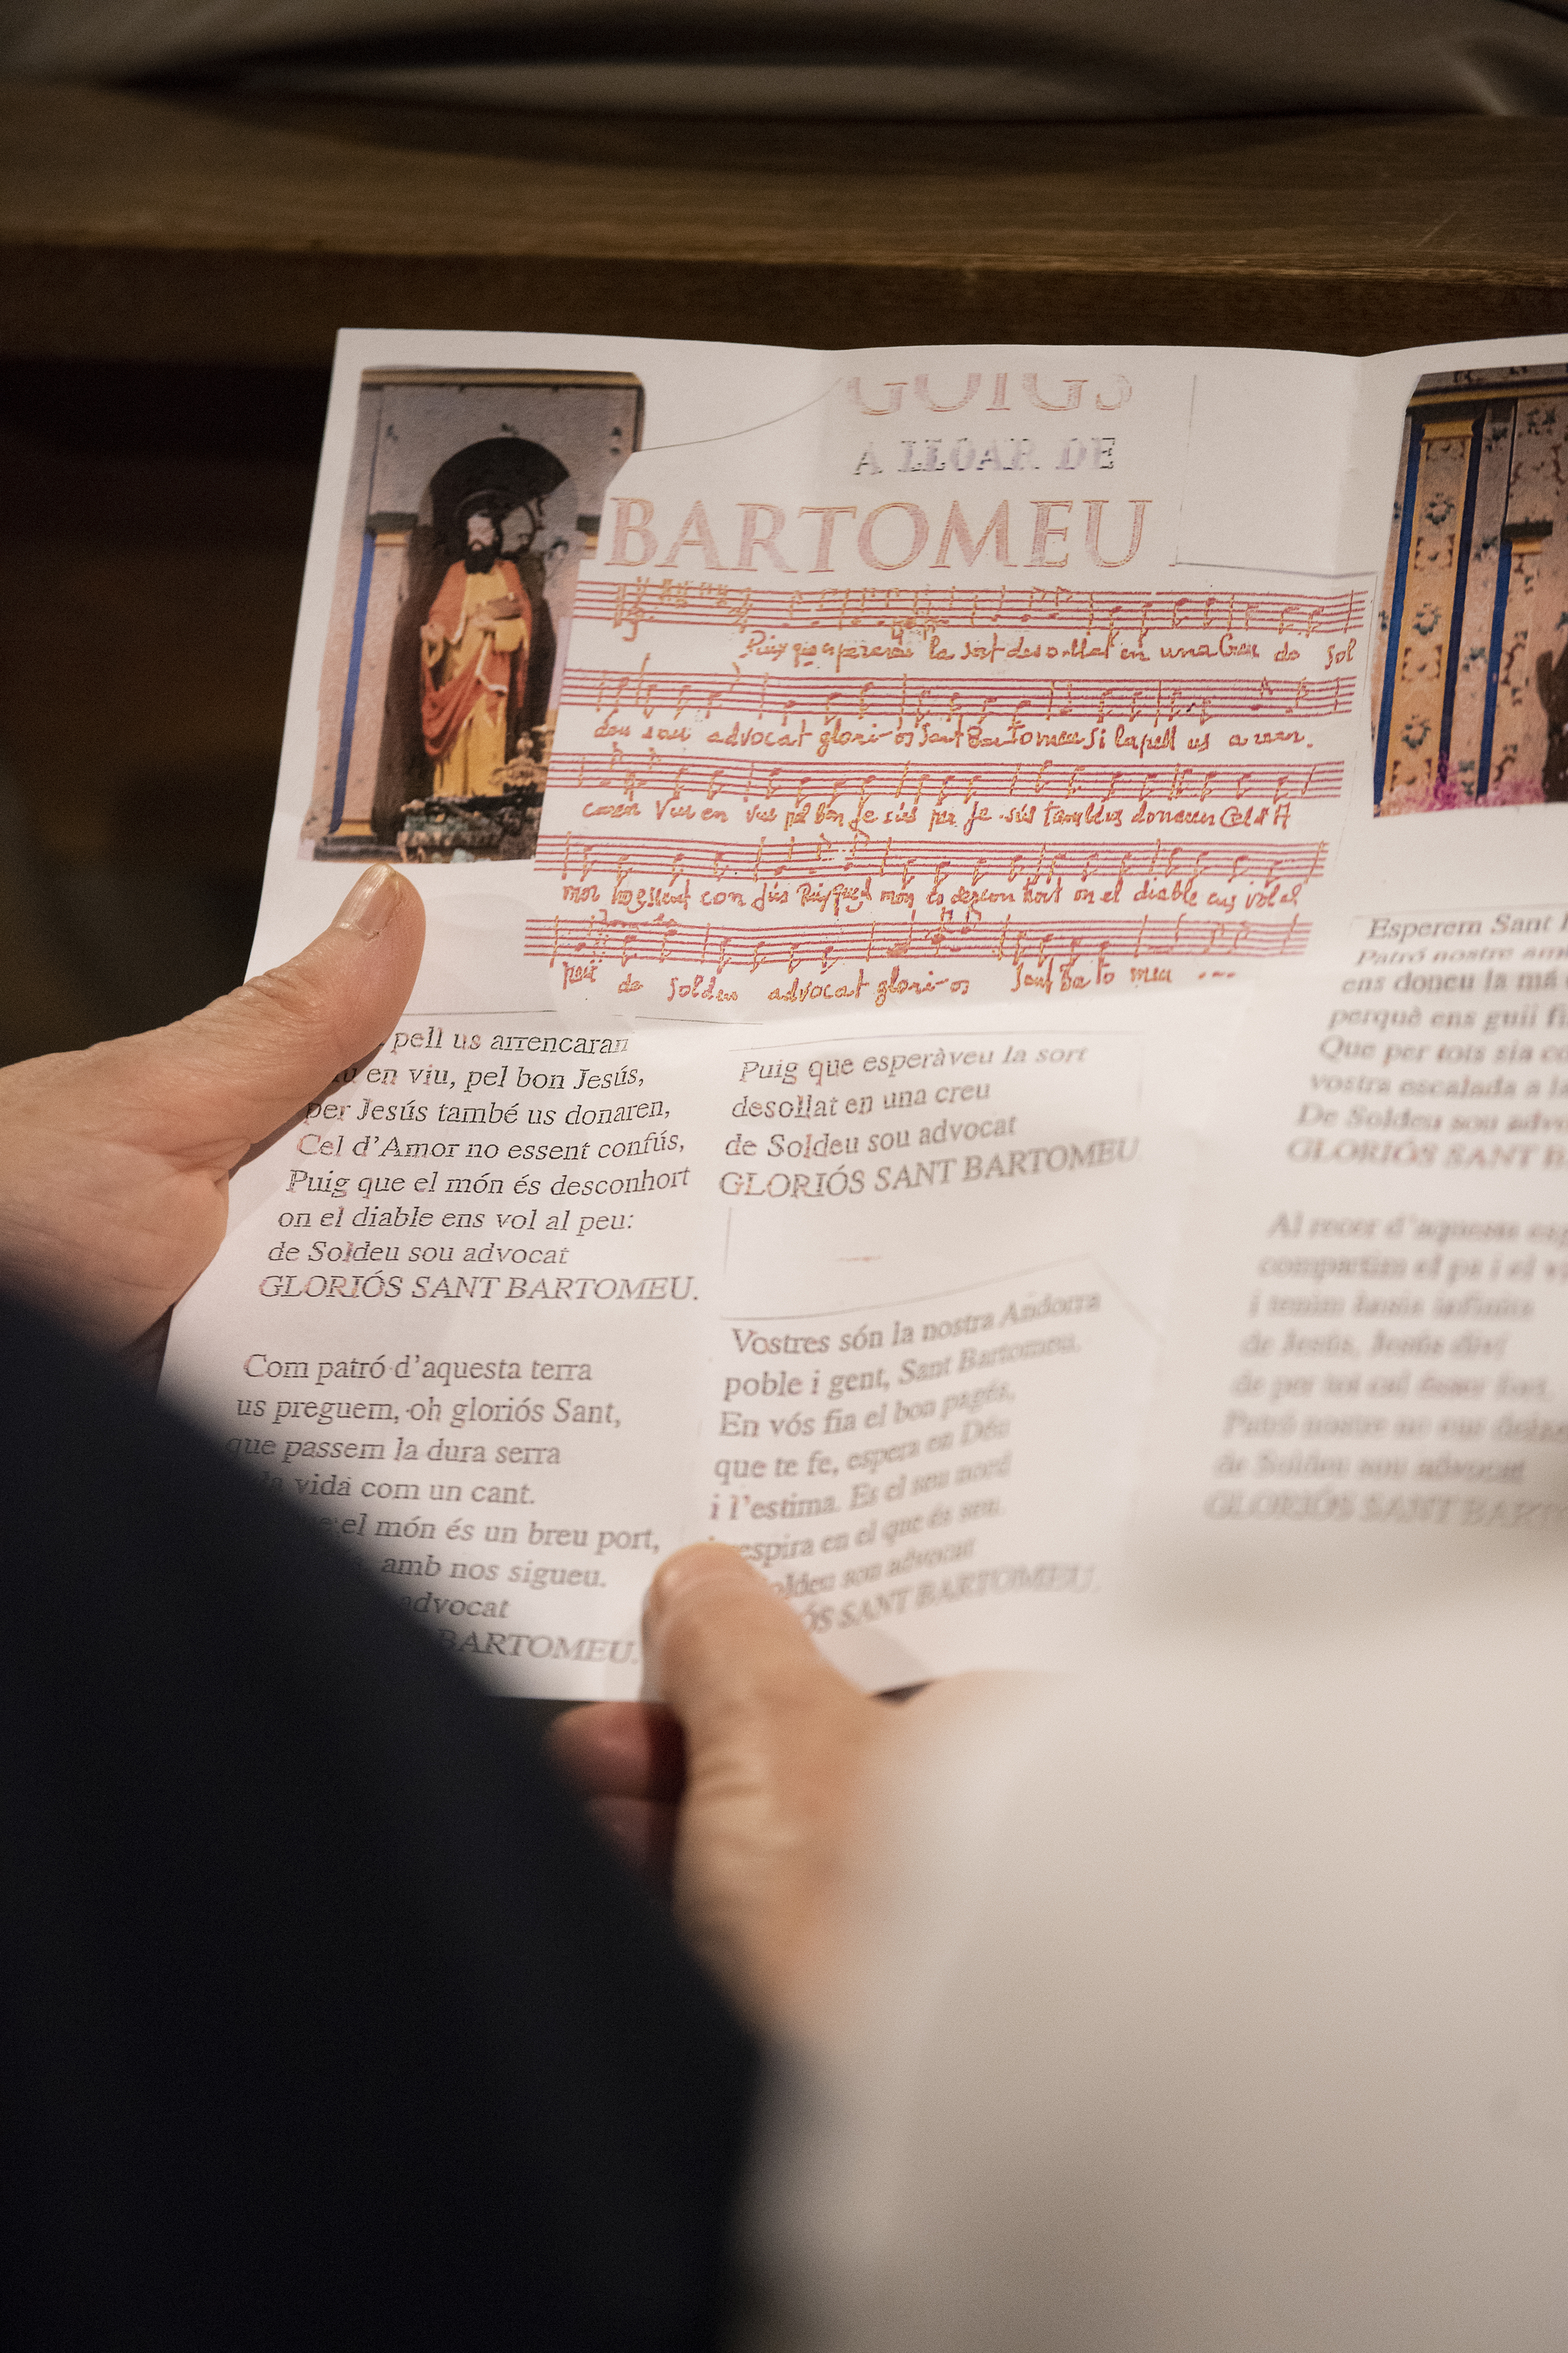 GOIGS
A LLOAR DE
BARTOMEU
Puix que esperàveu la sort desollat en una Creu de Sol
deu sou advocat glori-ós Sant Bartomeu Si la pell us arren.
caren Viu en viu pel bon Jesús per Je-sús també us donaren Cel d'A
mor no essent confús Puix que el món és desconhort on el diable ens vol al
peu de Soldeu advocat glori-os Sant Barto meu ---
pell us arrencaran
en viu, pel bon Jesús,
per Jesús també us donaren,
Cel d'Amor no essent confús,
Puig que el món és desconhort
on el diable ens vol al peu:
de Soldeu sou advocat
GLORIÓS SANT BARTOMEU.
Com patró d'aquesta terra
us preguem, oh gloriós Sant,
que passem la dura serra
vida com un cant.
el món és un breu port,
amb nos sigueu.
advocat
BARTOMEU.
Puig que esperàveu la sort
desollat en una creu
de Soldeu sou advocat
GLORIÓS SANT BARTOMEU
Vostres són la nostra Andorra
poble i gent, Sant Bartomeu.
En vós fia el bon pagés,
que te fe, espera en Déu
i l'estima. Es el seu nord
respira en el que és seu.
Soldeu sou advocat
SANT BARTOMEU.
Esperem Sant
Patró nostre
ens doneu la má
perquè ens guii
Que per tots sia
vostra escalada a
De Soldeu sou
GLORIÓS SANT
Al recer d'aquesta
compartim el pa i el
i tenim
de Jesús, Jesús diví
de per tot
Patró nostre no ens
de Soldeu sou advocat
GLORIÓS SANT